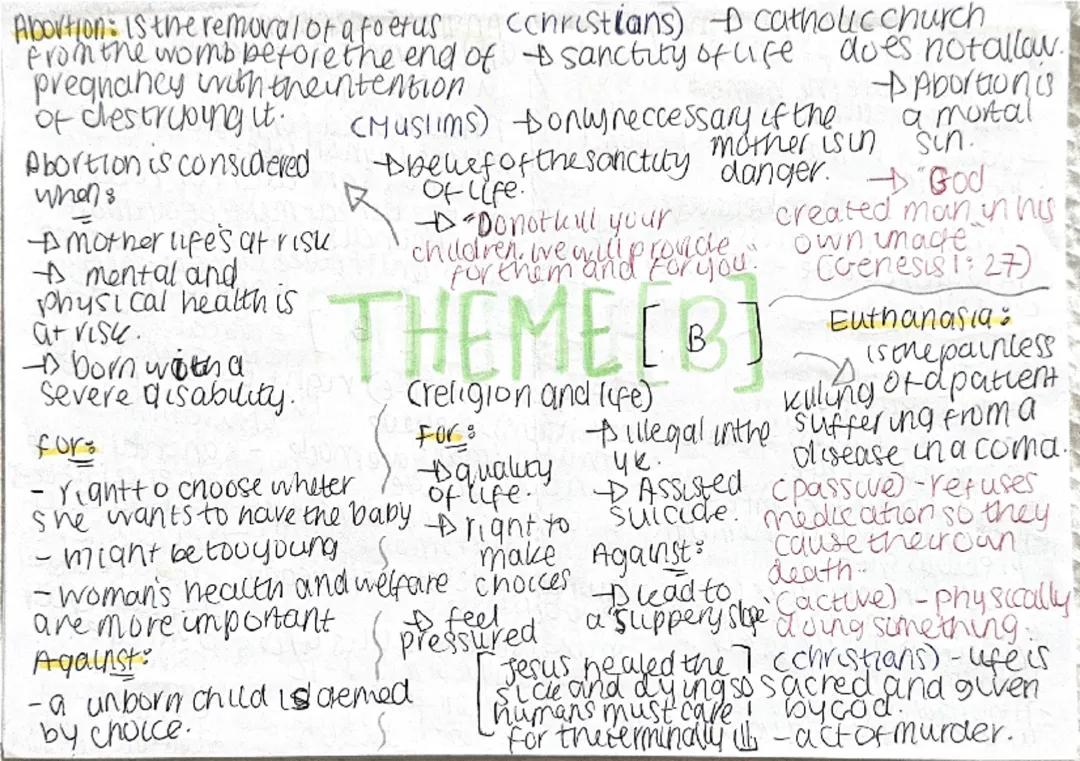 Abortion: is the removal of a foetus
from the womb before the end of
pregnancy with the intention
of destroying it.
(Christians)
→ sanctity of life
→ catholic church
does not allow.
→ Abortion is
a mortal
sin.
→ only neccessary if the
mother is in
danger.
→ "God
created man in his
own image"
(Genesis 1:27)
(Muslims)
→ belief of the sanctity
of life.
→ "Do not kill your
children, we will provide
for them and for you."
Abortion is considered
when:
→ mother life's at risk
→ mental and
physical health is
at risk.
→ born with a
severe disability.
THEME [B]
(religion and life)
for:
- right to choose wheter
she wants to have the baby
- might be too young
- womans health and welfare
are more important
Against:
- a unborn child is demed
by choice.
Euthanasia:
is the painless
killing of a patient
suffering from a
disease in a coma.
(passive) - refuses
medication so they
cause their own
death.
(active) - physically
doing something.
For:
→ quality
of life.
→ right to
make
choices
→ feel
pressured
→ illegal in the
UK.
→ Assisted
suicide.
Against:
→ lead to
a slippery slope
[Jesus healed the
sick and dying so
humans must care
for the terminally ill]
(Christians) - life is
sacred and given
by God.
- act of murder.